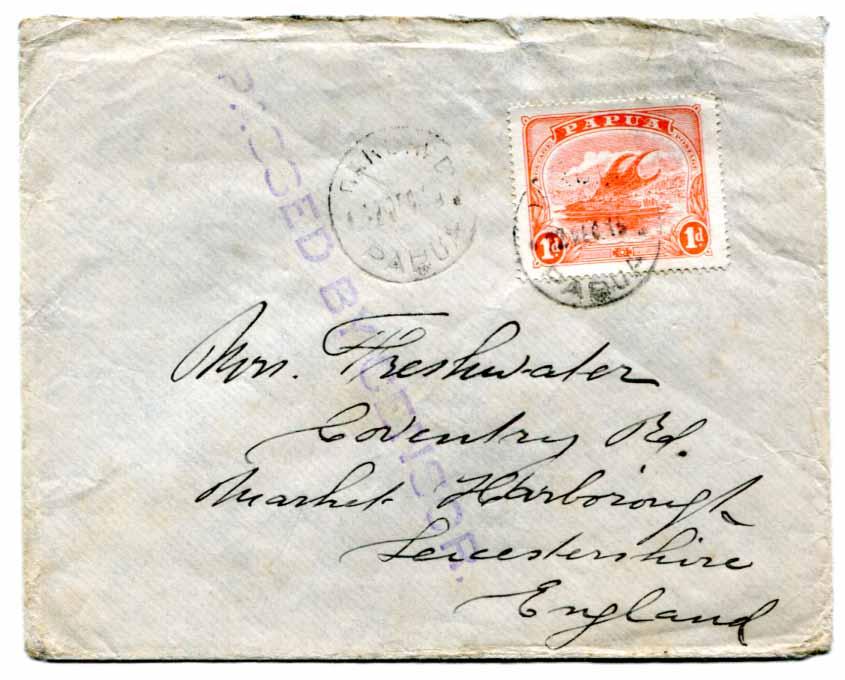 PASSED BY CENSOR.
PAPUA
POSTAGE
1d
1d
PAPUA
PAPUA
Mrs. Freshwater
Coventry Rd.
Market Harborough
Leicestershire
England